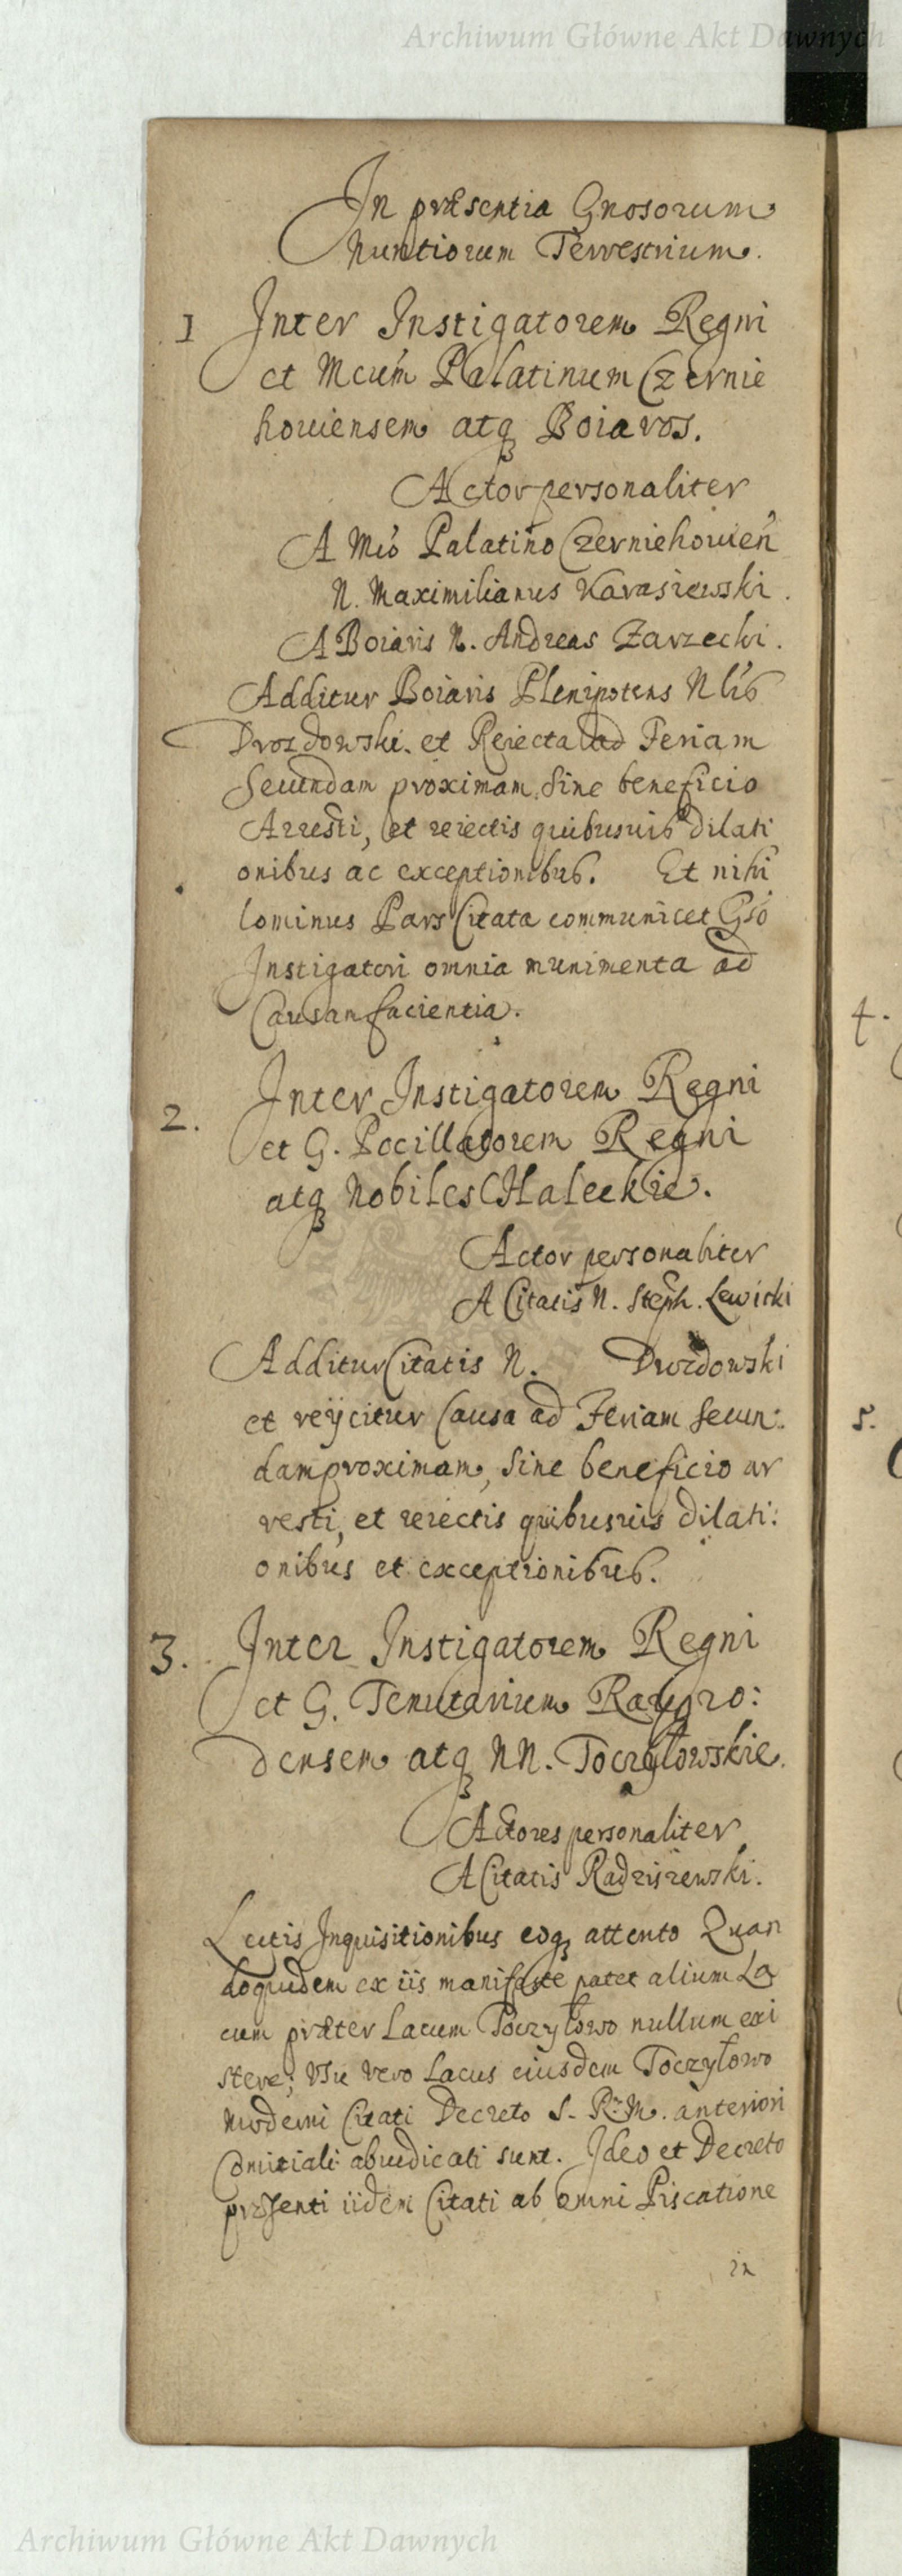 Archiwum Główne Akt Dawnych
In præsentia Gnosorum
Nuntiorum Terrestrium.
1 Inter Instigatorem Regni
et Mcum Palatinum Czernie
howiensem atq Boiaros.
Actor personaliter
A Mco Palatino Czerniehowień
N. Maximilianus Karasiewski.
A Boiaris N. Andreas Zarzecki.
Additur Boiaris Plenipotens Nlis
Drozdowski. et Reiecta ad Feriam
Secundam proximam, Sine beneficio
Arresti, et reiectis quibusuis dilati
onibus ac exceptionibus. Et nihi
lominus Pars Citata communicet Gso
Instigatori omnia munimenta ad
Causam facientia.
2. Inter Instigatorem Regni
et G. Pocillatorem Regni
atq Nobiles Haleckie.
Actor personaliter
A Citatis N. Steph. Lewicki
Additur Citatis N. Drozdowski
et reijcitur Causa ad Feriam Secun:
dam proximam, Sine beneficio ar
resti, et reiectis quibusuis dilati:
onibus et exceptionibus.
3. Inter Instigatorem Regni
et G. Tenutarium Raygro:
densem atq NN. Toczyłowskie.
Actores personaliter
A Citatis Radziszewski.
Lectis Inquisitionibus eoq attento Quan
doquidem ex iis manifeste patet alium La
cum præter Lacum Toczyłowo nullum exi
stere; Usu vero Lacus eiusdem Toczyłowo
moderni Citati Decreto S. R. M. anteriori
Comitiali abiudicati sunt. Ideo et Decreto
præsenti iidem Citati ab omni Piscatione
in
4.
5.
Archiwum Główne Akt Dawnych